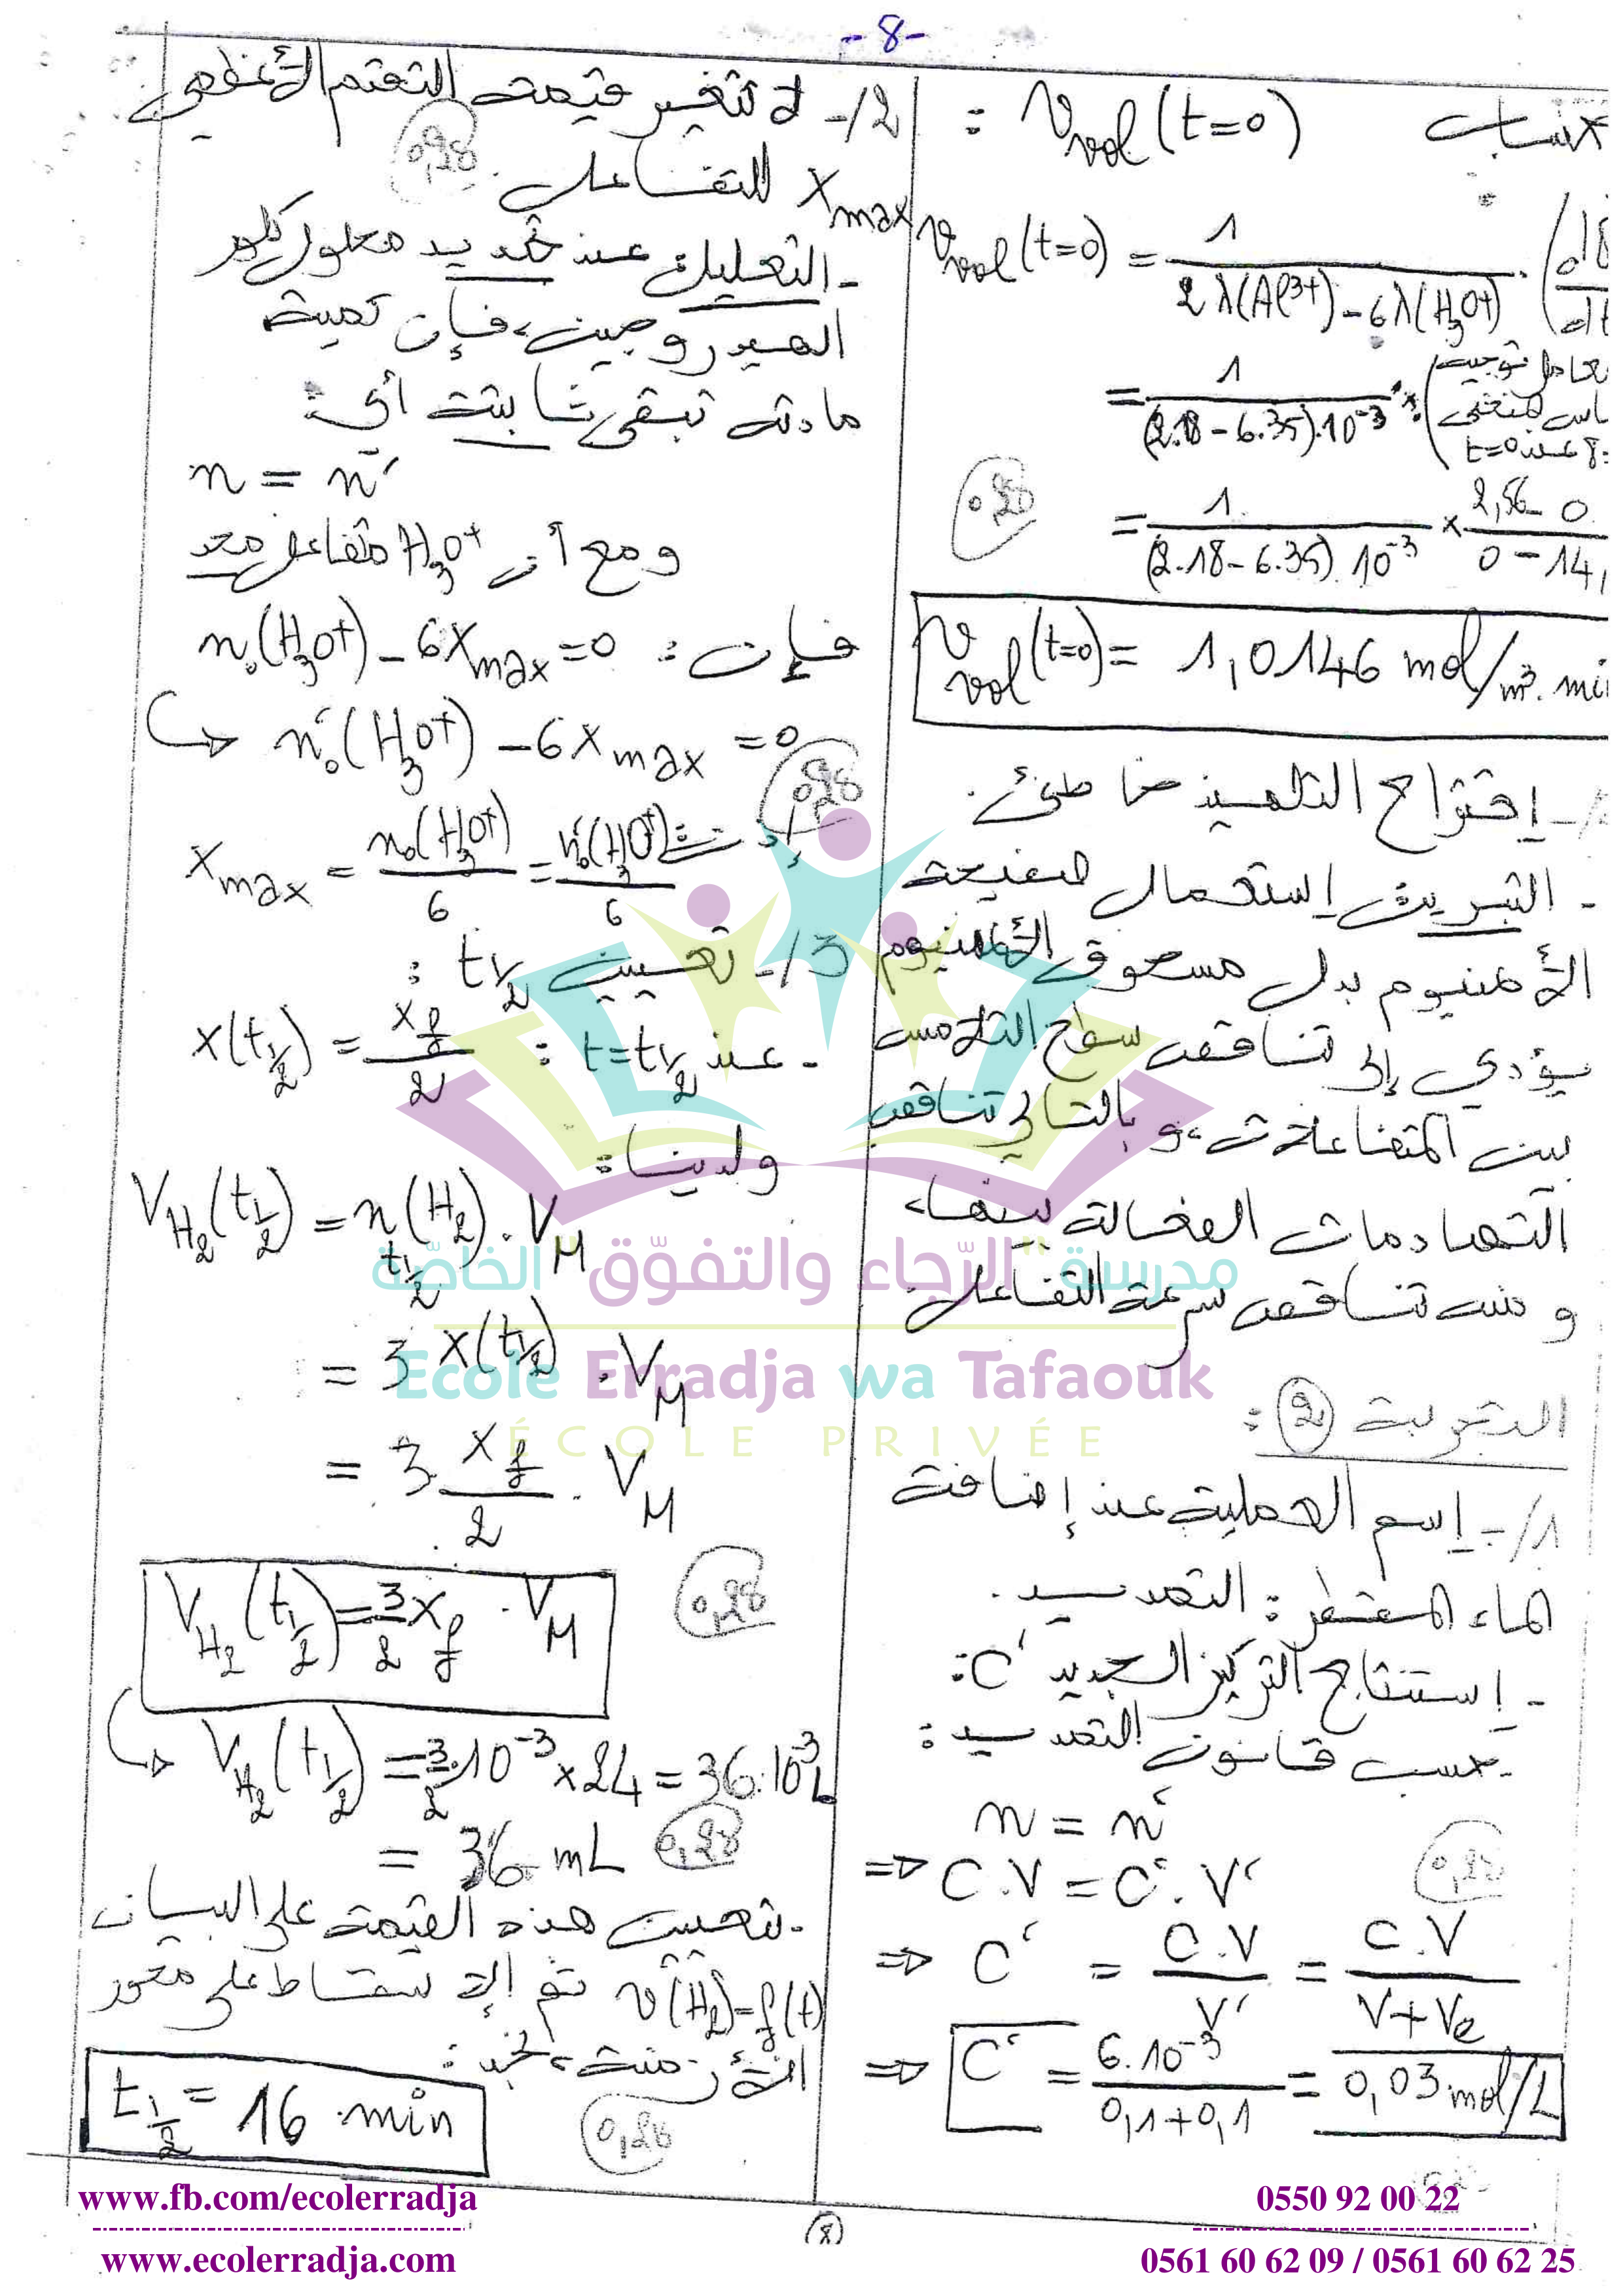 -8-
حساب v_vol(t=0) :
v_vol(t=0) = 1 / (2λ(Al³⁺) - 6λ(H₃O⁺)) .
= 1 / ((2.18 - 6.35).10⁻³) . (توجيه
t=0 عند
= 1 / ((2.18 - 6.35).10⁻³) × (2,56 - 0) / (0 - 14,
0,28
v_vol(t=0) = 1,0146 mol/m³.min
/- إقتراح التلميذ خاطئ.
- التبرير: إستعمال صفيحة
الألمنيوم بدل مسحوق الألمنيوم
يؤدي إلى تناقص سطح التلامس
بين المتفاعلات، و بالتالي تناقص
التصادمات الفعالة بينها،
و منه تناقص سرعة التفاعل.
التجربة ② :
1/- إسم العملية عند إضافة
الماء المقطر : التمديد.
- إستنتاج التركيز الجديد C' :
- حسب قانون التمديد :
n = n'
0,28
⇒ C.V = C'.V'
⇒ C' = C.V / V' = C.V / (V+Ve)
⇒ C' = 6.10⁻³ / (0,1+0,1) = 0,03 mol/L
2/- لا تتغير قيمة التقدم الأعظمي
x_max للتفاعل.
0,28
- التعليل: عند تمديد محلول كلور
الهيدروجين، فإن كمية
مادته تبقى ثابتة أي :
n = n'
و مع أن H₃O⁺ متفاعل محد
فإن : n₀(H₃O⁺) - 6x_max = 0
↪ n'₀(H₃O⁺) - 6x_max = 0
0,28
إذن : x_max = n₀(H₃O⁺) / 6 = n'₀(H₃O⁺) / 6
3/- تعيين t½ :
- عند t=t½ : x(t½) = x_f / 2
ولدينا :
V_H₂(t½) = n_t½(H₂) . V_M
= 3 x(t½) . V_M
= 3. x_f / 2 . V_M
0,28
V_H₂(t½) = 3/2 x_f . V_M
↪ V_H₂(t½) = 3/2.10⁻³ × 24 = 36.10⁻³ L
= 36 mL
0,28
- تعيين هذه القيمة على البيان
v(H₂)=f(t) ثم الإسقاط على محور
الأزمنة، نجد :
t½ = 16 min
0,28
(8)
مدرسة "الرّجاء والتفوّق" الخاصّة
Ecole Erradja wa Tafaouk
ÉCOLE PRIVÉE
www.fb.com/ecolerradja
www.ecolerradja.com
0550 92 00 22
0561 60 62 09 / 0561 60 62 25